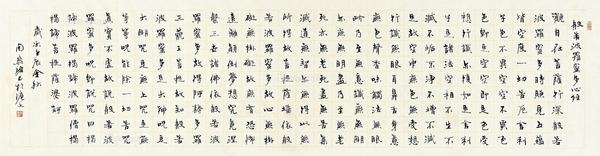 般若波羅蜜多心經
觀自在菩薩行深般若
波羅蜜多時照見五蘊
皆空度一切苦厄舍利
子色不異空空不異色
色即是空空即是色受
想行識亦復如是舍利
子是諸法空相不生不
滅不垢不淨不增不
減是故空中無色無受想
行識無眼耳鼻舌身意
無色聲香味觸法無眼
界乃至無意識界無無
明亦無無明盡乃至無老
死亦無老死盡無苦集
滅道無智亦無得以無
所得故菩提薩埵依般
若波羅蜜多故心無罣
礙無罣礙故無有恐怖
遠離顛倒夢想究竟涅
槃三世諸佛依般若波
羅蜜多故得阿耨多羅
三藐三菩提故知般若
波羅蜜多是大神咒是
大明咒是無上咒是無
等等咒能除一切苦
真實不虛故說般若波
羅蜜多咒即說咒曰揭
諦揭諦波羅揭諦波羅僧
揭諦菩提薩婆訶
歲次金秋
於滬上